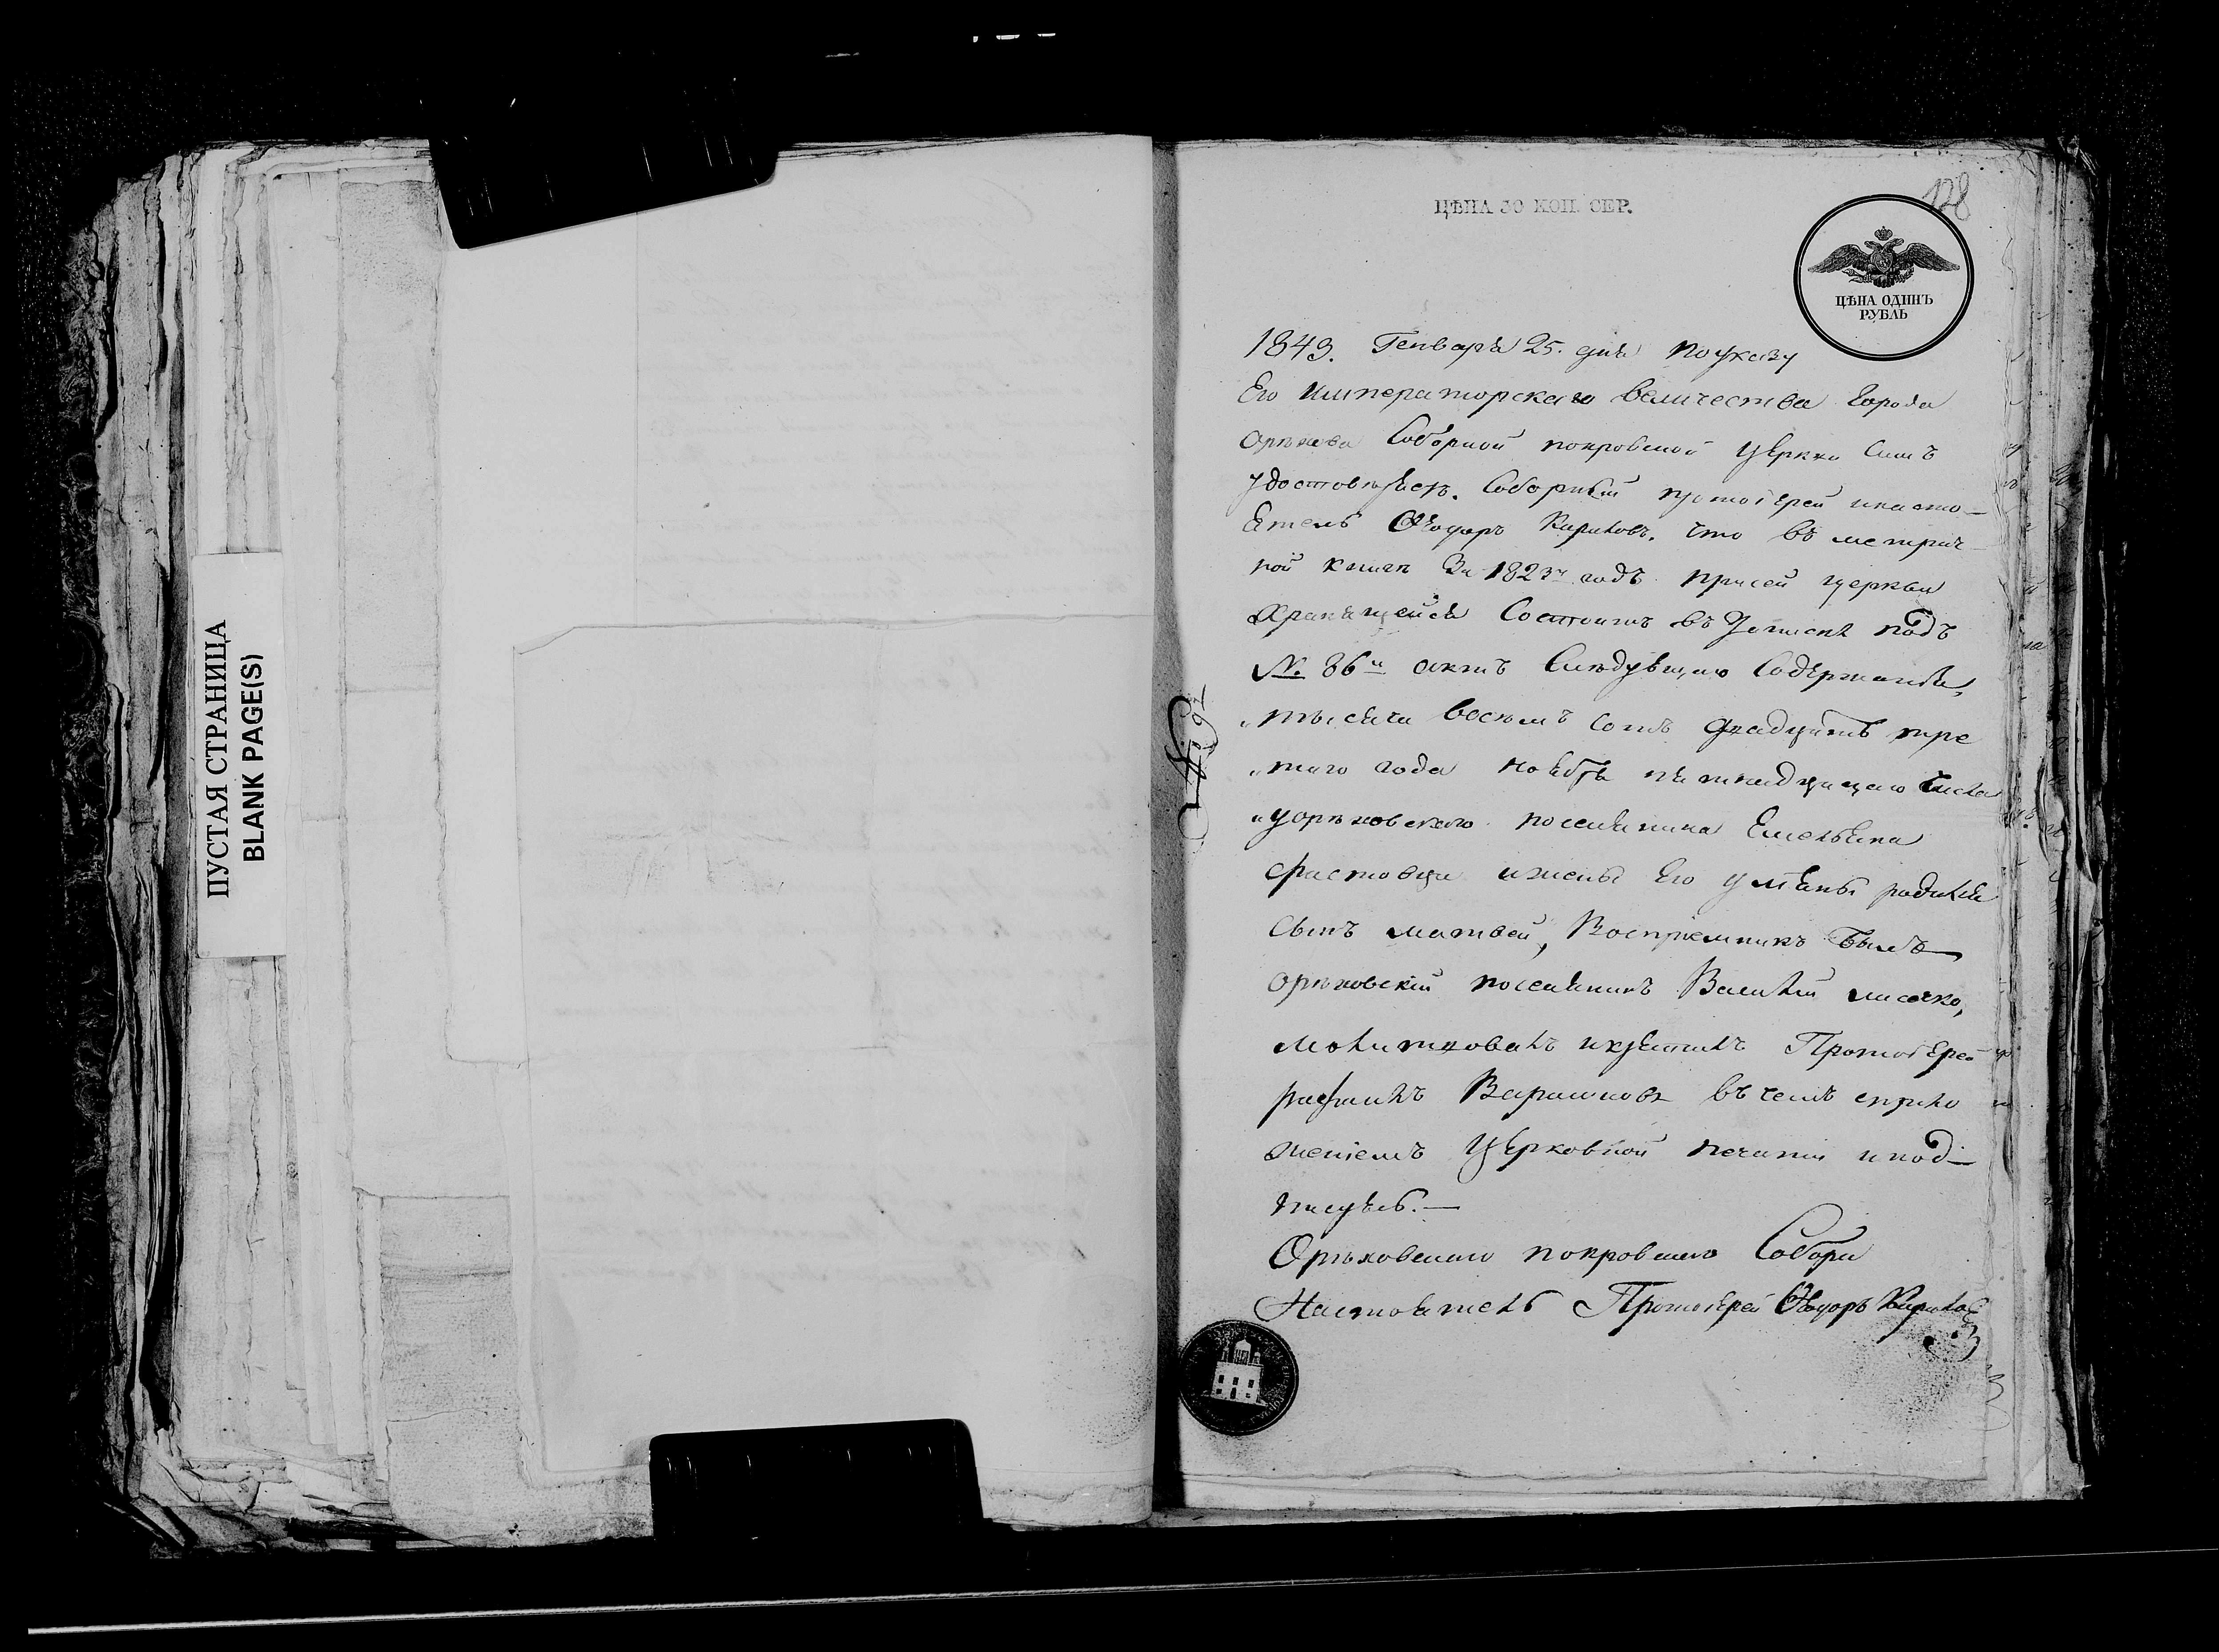 ПУСТАЯ СТРАНИЦА
BLANK PAGE(S)
128
ЦѢНА 30 КОП. СЕР.
ЦѢНА ОДИНЪ
РУБЛЬ
1843. Генваря 25. дня по указу
Его Императорскаго величества города
Орѣхова Соборной покровской церкви Симъ
удостовѣряетъ. Соборный протоіерей и насто-
ятель Ѳеодоръ Кириловъ. что въ метрич-
ной книги За 1823й годъ при сей церкви
хранящейся Состоитъ въ Записи подъ
№. 86й актъ Слѣдующаго Содержанія,
„тысяча восемъ сотъ двадцать тре
„тяго года ноября пятнадцатаго числа
„у орѣховского поселянина Емельяна
и жены Его Ульяны родился
Сынъ матвей, Воспріемникъ Былъ
орѣховскій поселянинъ Василій
молитвовалъ и крестилъ Протоіерей
въ чемъ с прило
женіемъ Церковной печати и под-
писуюсь.—
Орѣховскаго покровскаго Собора
Настоятель Протоіерей Ѳеодоръ Кирилов
№ 92